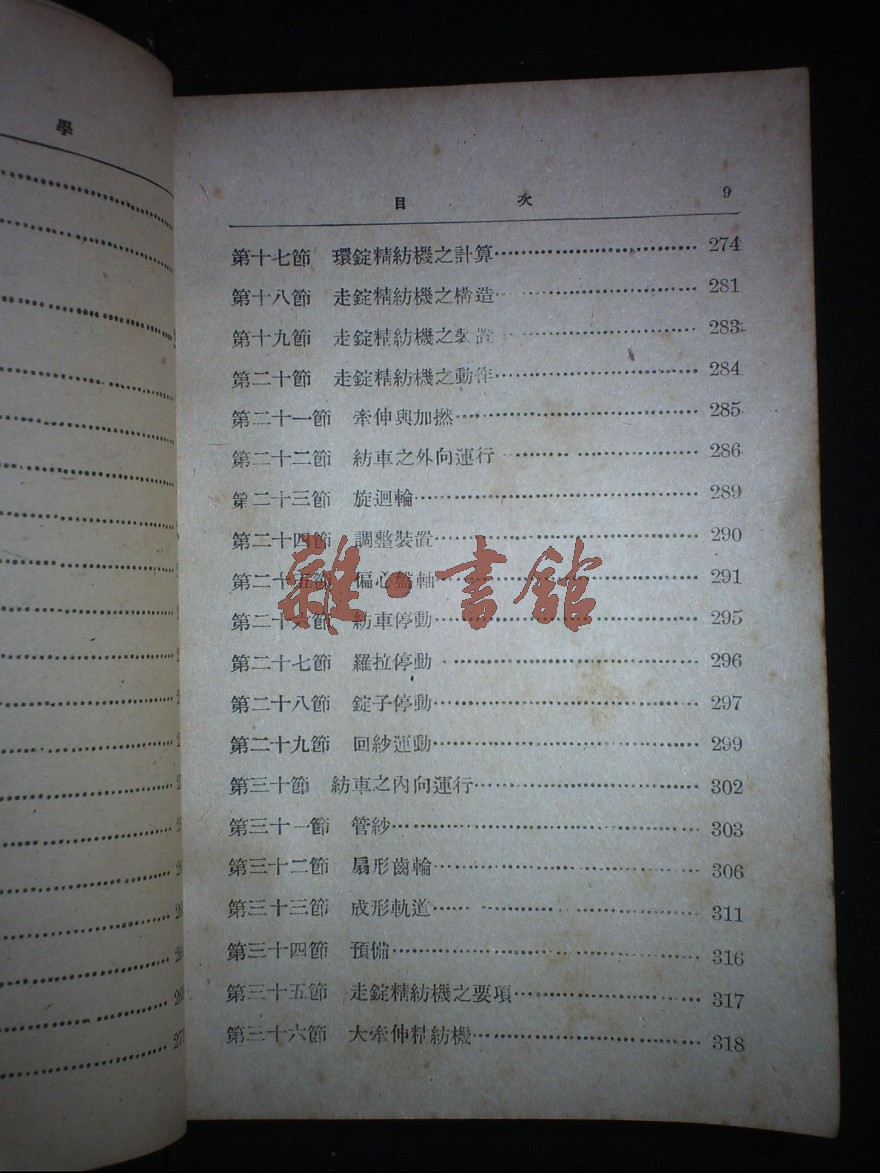 學
目 次 9
第十七節 環錠精紡機之計算 274
第十八節 走錠精紡機之構造 281
第十九節 走錠精紡機之裝置 283
第二十節 走錠精紡機之動作 284
第二十一節 牽伸與加撚 285
第二十二節 紡車之外向運行 286
第二十三節 旋迴輪 289
第二十四節 調整裝置 290
第二十五節 偏心盤軸 291
第二十六節 紡車停動 295
第二十七節 羅拉停動 296
第二十八節 錠子停動 297
第二十九節 回紗運動 299
第三十節 紡車之內向運行 302
第三十一節 管紗 303
第三十二節 扇形齒輪 306
第三十三節 成形軌道 311
第三十四節 預備 316
第三十五節 走錠精紡機之要項 317
第三十六節 大牽伸精紡機 318
雜·書館